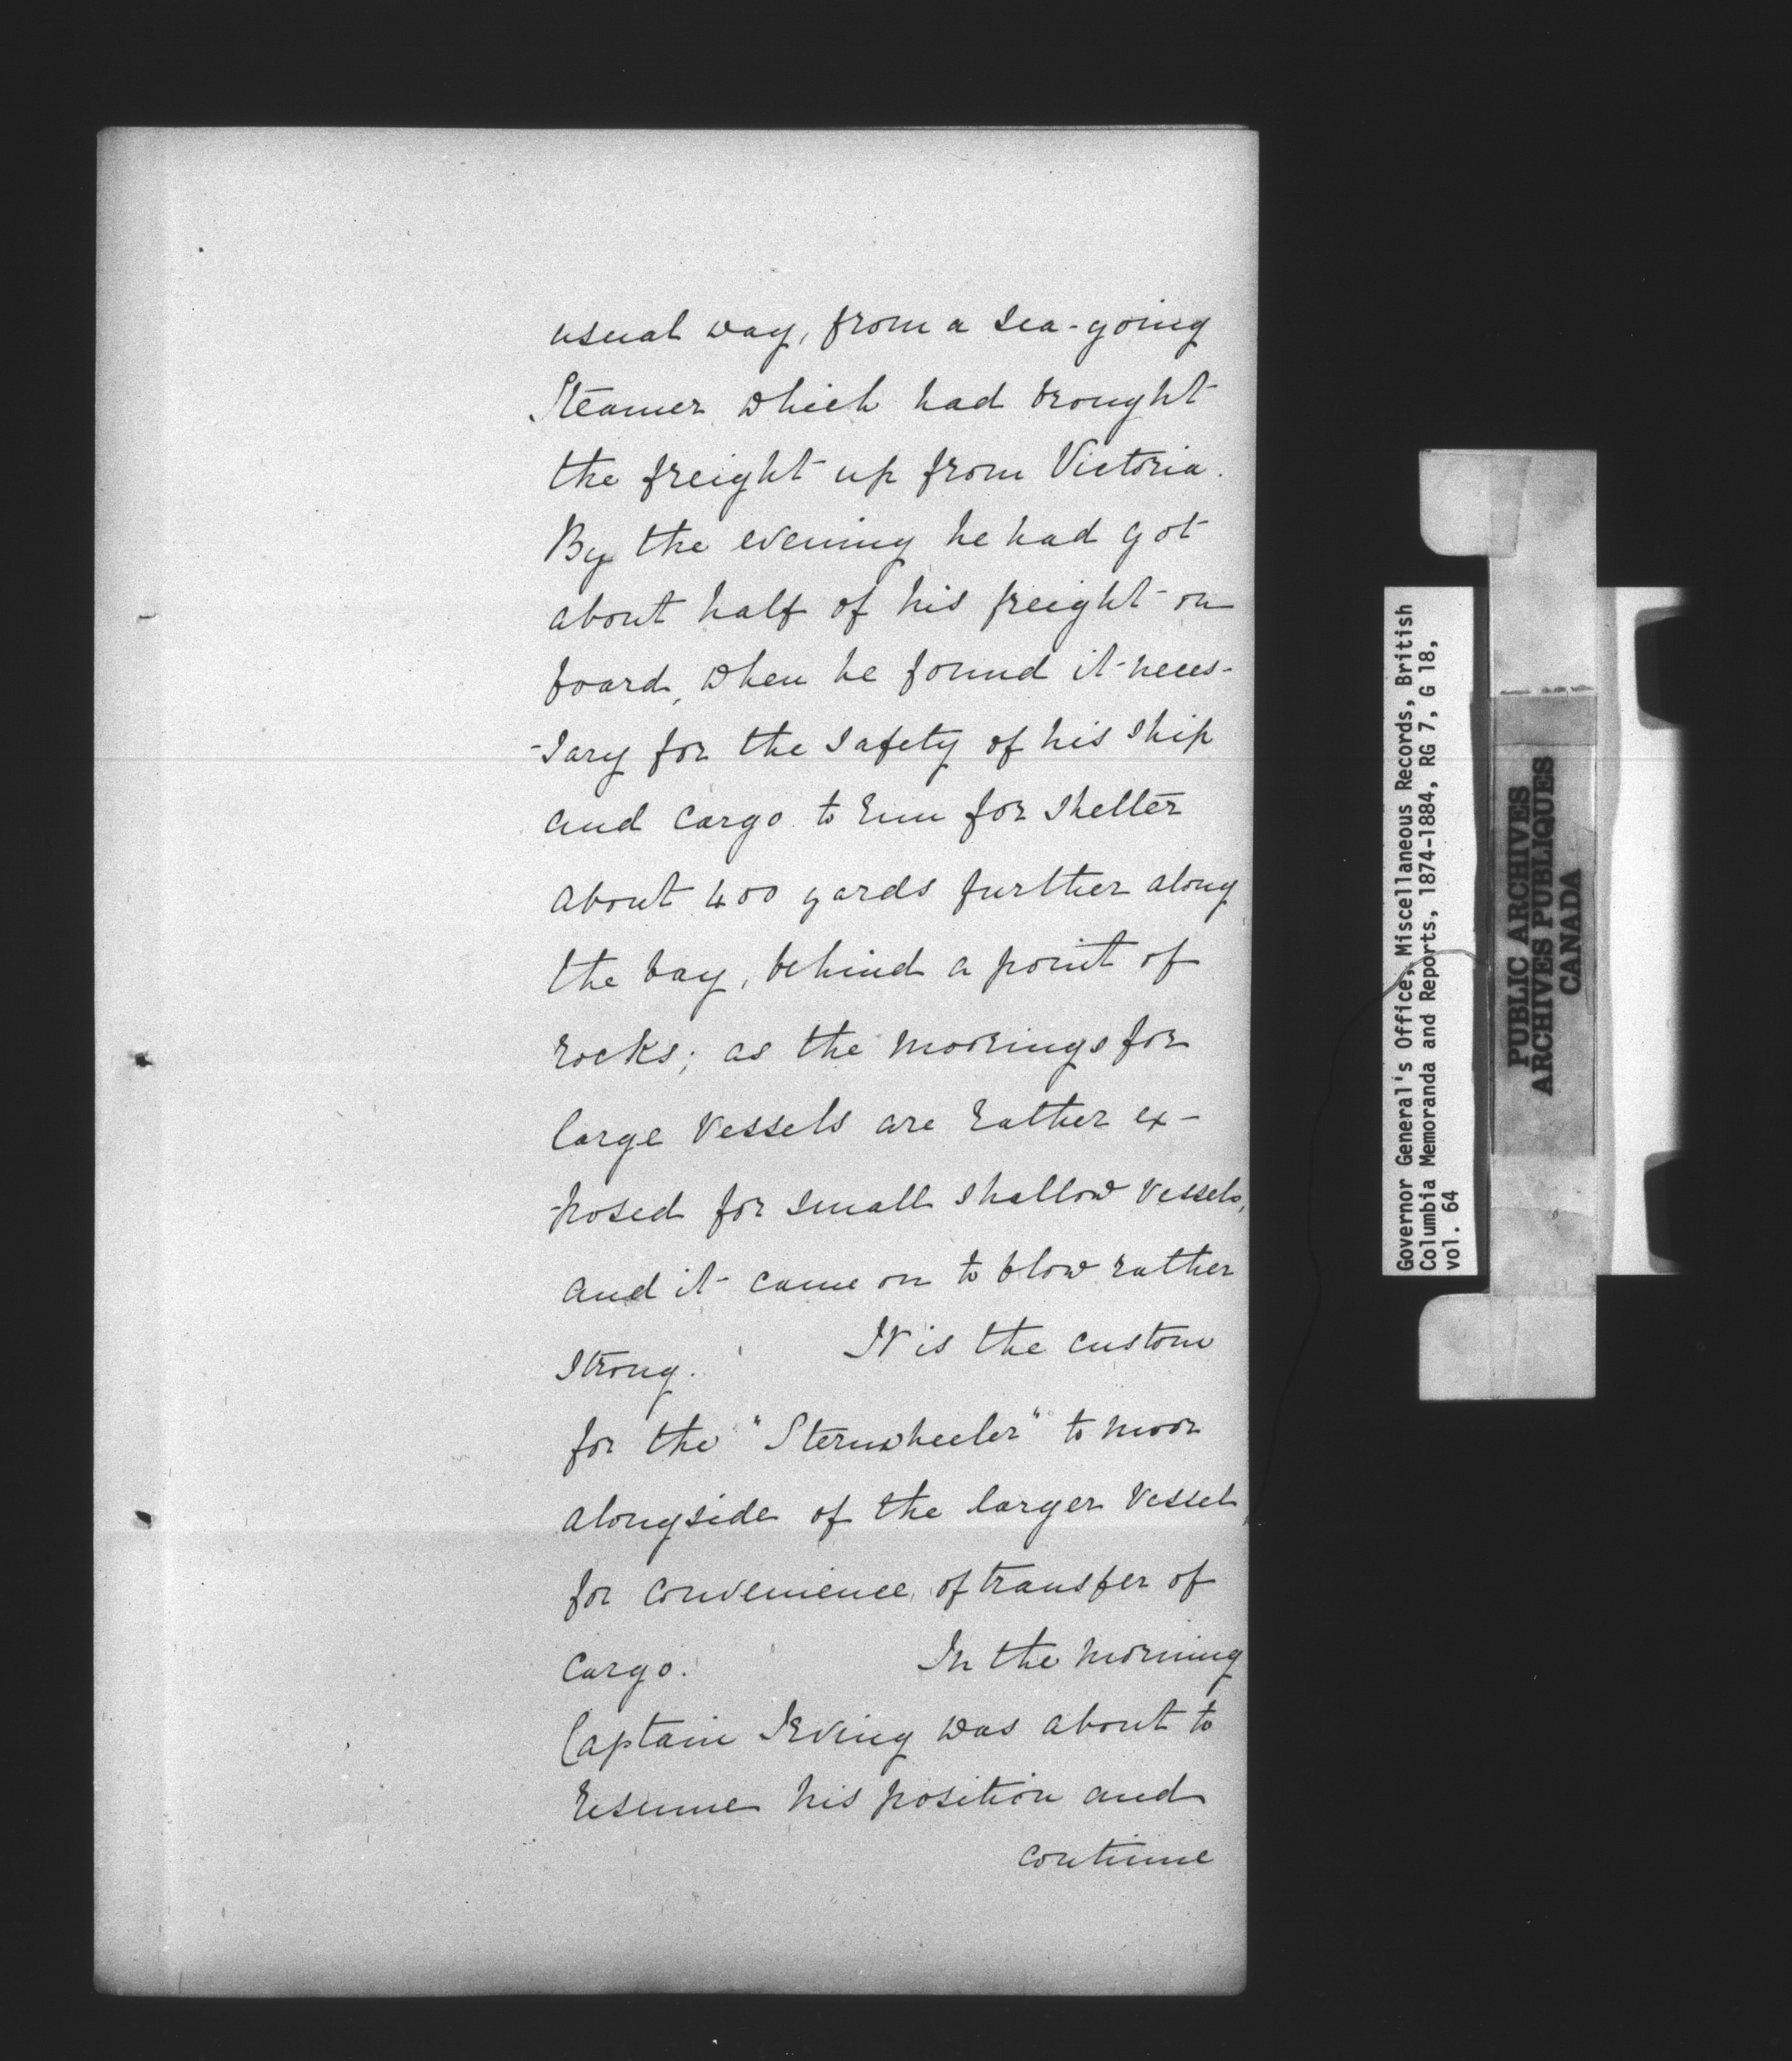 usual way, from a sea-going
Steamer which had brought
the freight up from Victoria.
By the evening he had got
about half of his freight on
board, when he found it neces-
-sary for the safety of his ship
and cargo to run for shelter
about 400 yards further along
the bay, behind a point of
rocks; as the moorings for
large vessels are rather ex-
-posed for small shallow vessels,
and it came on to blow rather
strong. It is the custom
for the "Sternwheeler" to moor
alongside of the larger vessel,
for convenience of transfer of
cargo. In the morning
Captain Irving was about to
resume his position and
continue
Governor General's Office, Miscellaneous Records, British
Columbia Memoranda and Reports, 1874-1884, RG 7, G 18,
vol. 64
PUBLIC ARCHIVES
ARCHIVES PUBLIQUES
CANADA